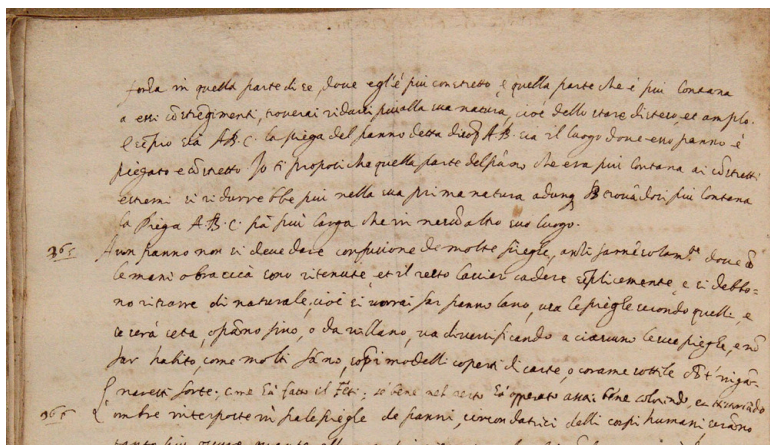 forza in quella parte di se, dove egl'è piu constretto, e quella parte che è piu lontana
a essi cōstregimenti, troverai ridursi piu alla sua natura, cioè dello stare disteso et amplo.
sia A.B.C. la piega del panno detta di sop̄ A.B. sia il luogo dove esso panno è
piegato e cōstretto Io ti proposi che quella parte del pāno che era piu lontana ai cōstretti
estremi si ridurrebbe piu nella sua prima natura adunq̄ B trovādosi piu lontana
la Piega A.B.C. fia piu larga che in nessū altro suo luogo.
365 A un panno non si deve dare confusione de molte pieghe, anzi farne solam.te dove cō
le mani o braccia sono ritenute, et il resto lasciar cadere semplicemente, e si debbo-
no ritrarre di naturale, cioè si vorrai far panno lano, usa le pieghe secondo quelli, e
se serà seta, o pāno fino, o da villano, va diversificando a ciascuno le sue pieghe, e nō
far habito, come molti fāno, sop̄ i modelli coperti di carte, o corame sottile
366 ombre interposte in fra le pieghe de panni, circondatrici delli corpi humani serāno